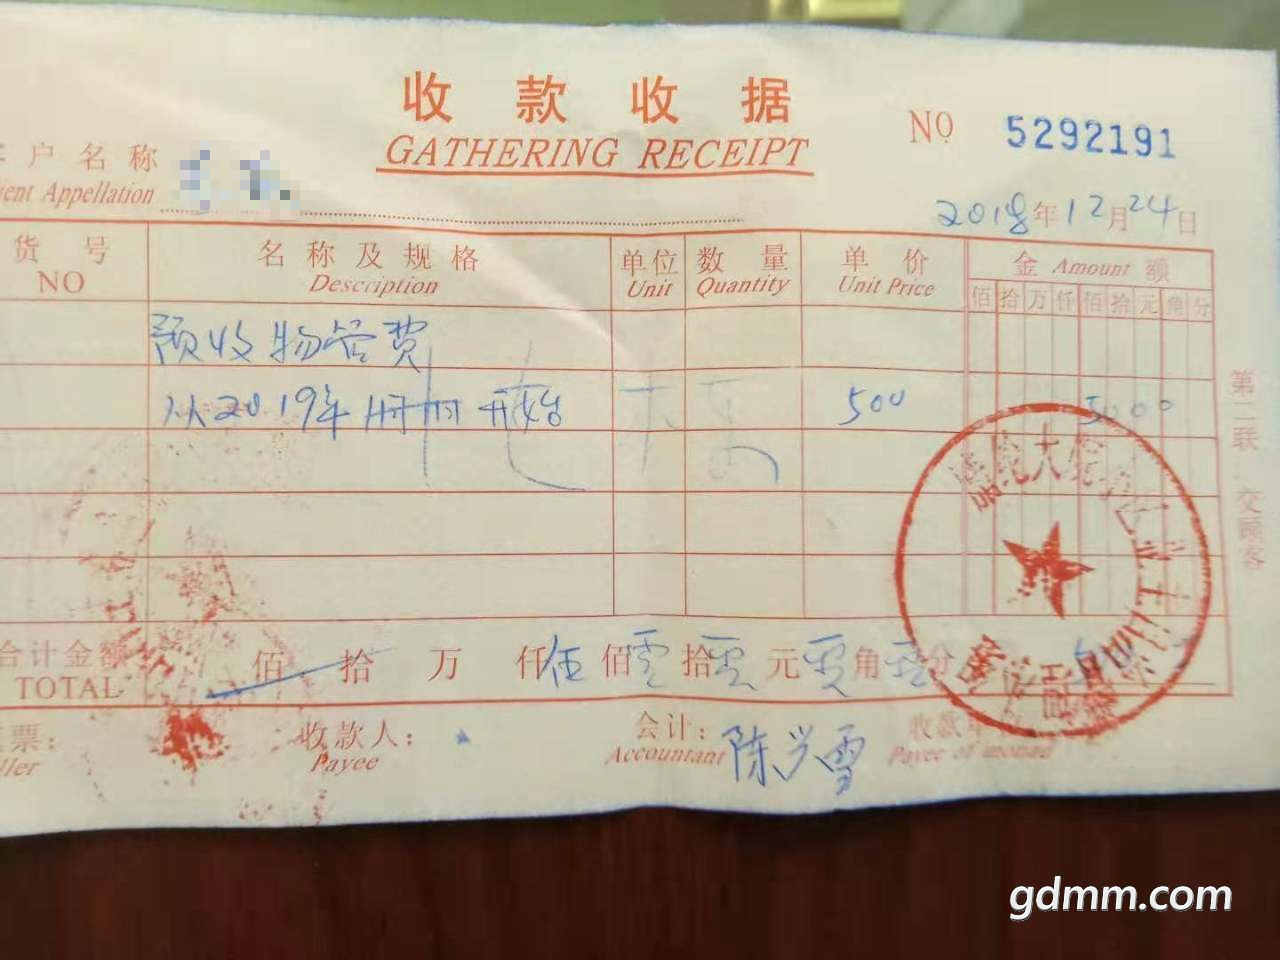 收款收据
GATHERING RECEIPT
NO 5292191
户名称
Appellation
2018年12月24日
货号 名称及规格 单位 数量 单价 金额
NO Description Unit Quantity Unit Price Amount
佰拾万仟佰拾元角分
预收物管费
从2019年 开始 500 5000
第二联 交顾客
合计金额 佰拾万仟伍佰零拾零元零角零分
TOTAL
票: 收款人: 会计: 陈兴雪 收款
Payee Accountant Payee of
gdmm.com